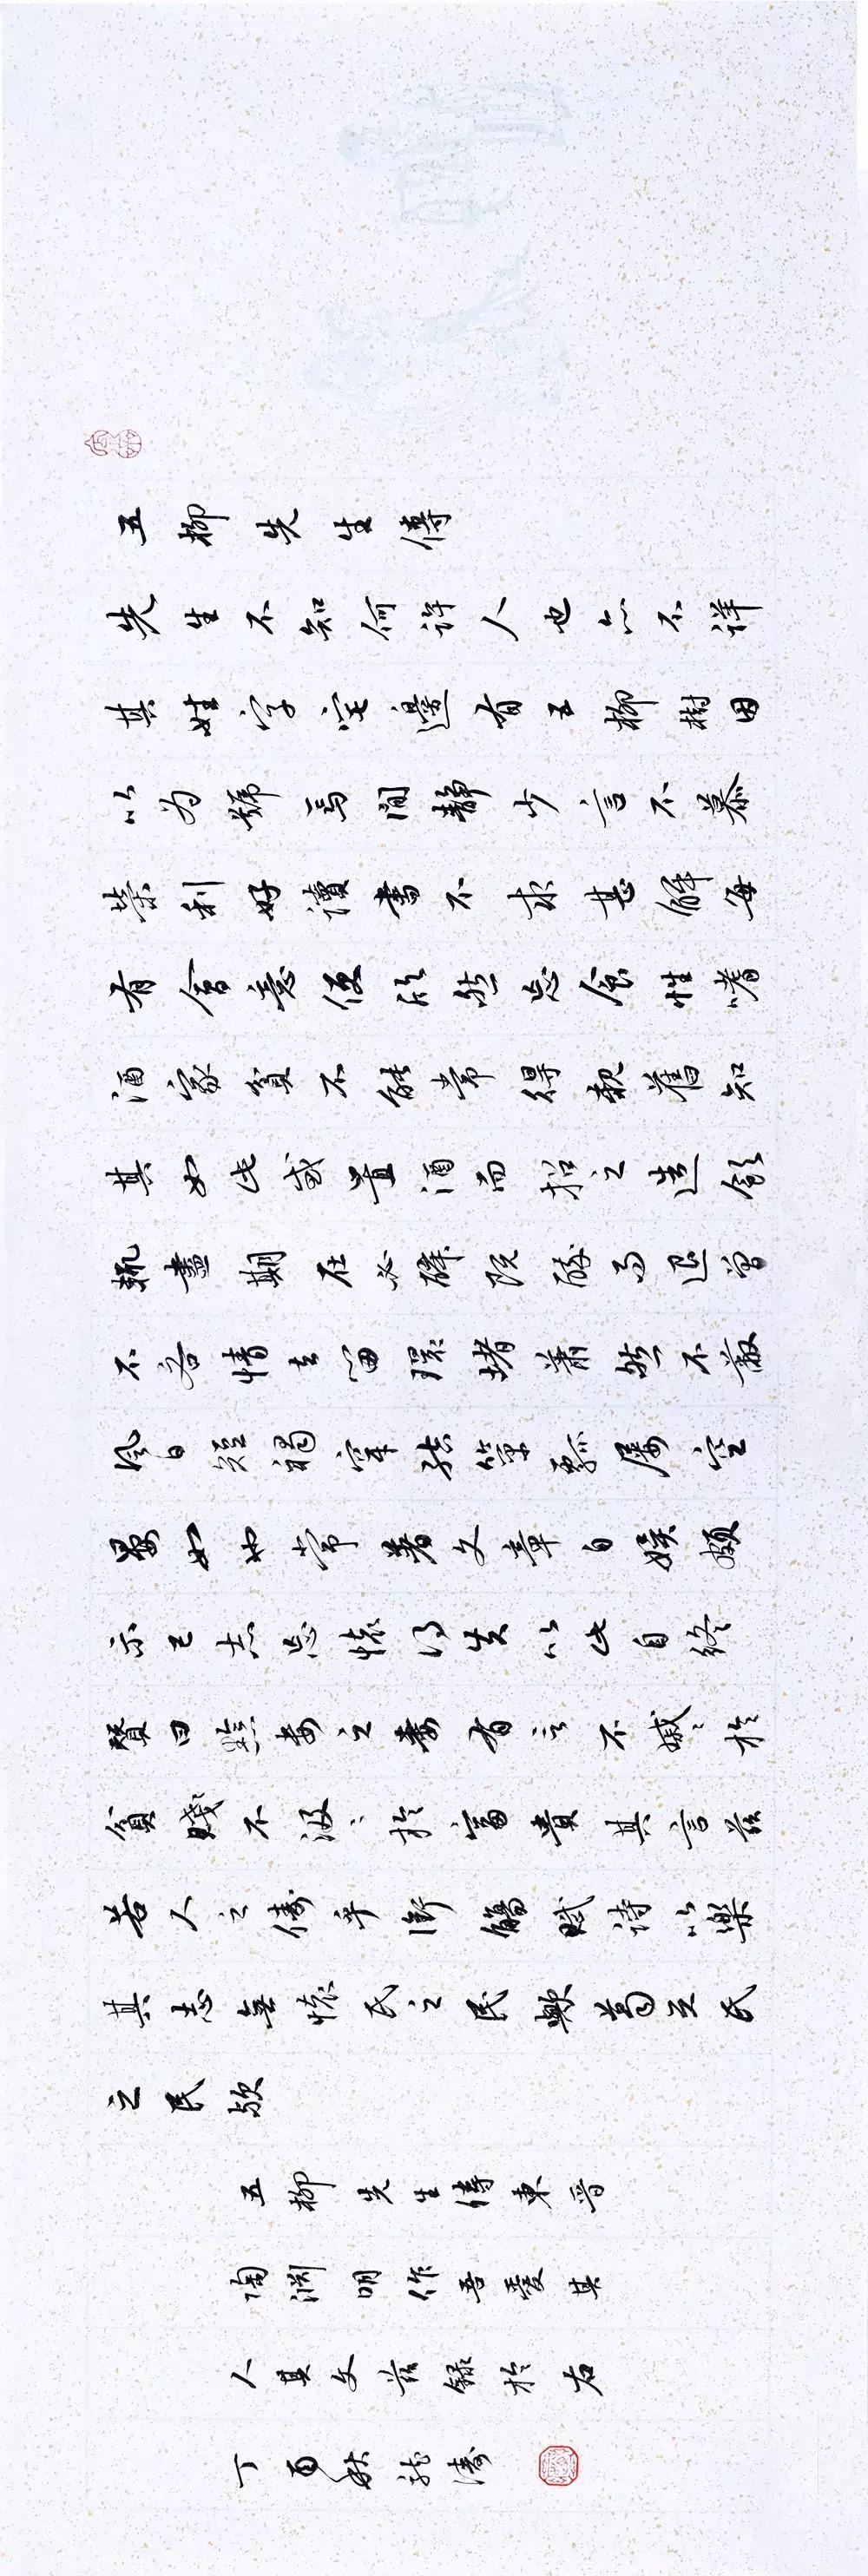 五柳先生傳
先生不知何許人也亦不詳
其姓字宅邊有五柳樹因
以為號焉閒靜少言不慕
榮利好讀書不求甚解每
有會意便欣然忘食性嗜
酒家貧不能常得親舊知
其如此或置酒而招之造飲
輒盡期在必醉既醉而退曾
不吝情去留環堵蕭然不蔽
風日短褐穿結簞瓢屢空
晏如也常著文章自娛頗
示己志忘懷得失以此自終
贊曰黔婁之妻有言不戚〻於
貧賤不汲〻於富貴其言茲
若人之儔乎銜觴賦詩以樂
其志無懷氏之民歟葛天氏
之民歟
五柳先生傳東晉
陶淵明作吾愛其
人其文茲錄於右
丁酉秋龍濤